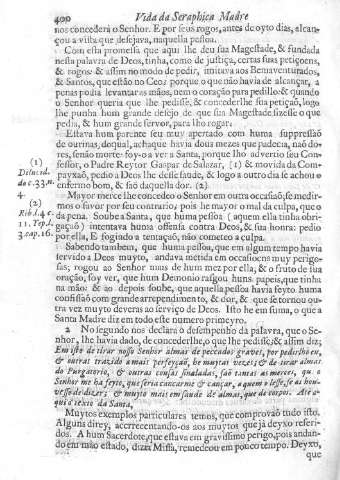 400
Vida da Seraphica Madre
nos concederà o Senhor. E por seus rogos, antes de oyto dias, alcan-
çou a vista que desejava, naquella pessoa.
Com esta promessa que aqui lhe deu sua Magestade, & fundada
nesta palavra de Deos, tinha, como de justiça, certas suas petiçoens,
& rogos: & assim no modo de pedir, imitava aos Bemaventurados,
& Santos, que estão no Ceo; porque o que não havia de alcançar, a
penas podia levantar as mãos, nem o coração para pedillo: & quando
o Senhor queria que lhe pedisse, & concederlhe sua petiçaõ, logo
lhe punha hum grande desejo de que sua Magestade fizesse o que
pedia, & hum grande fervor, para lho rogar.
Estava hum parente seu muy apertado com huma suppressaõ
de ourinas, do qual, achaque havia dous mezes que padecia, naõ do-
res, senaõ morte: foy-o a ver a Santa, porque lho advertio seu Con-
fessor, o Padre Reytor Gaspar de Salazar, (1) & movida da Com-
payxaõ, pedio a Deos lhe desse saude, & logo a outro dia se achou o
enfermo bom, & saõ daquella dor. (2)
(1)
do c. 33. n.
4.
(2)
Rib. l. 4. c.
11. Yep. l.
3. cap. 16.
Mayor merce lhe concedeo o Senhor em outra occasiaõ, se medir-
mos o favor por seu contrario; pois he mayor o mal da culpa, que o
da pena. Soube a Santa, que huma pessoa (a quem ella tinha obri-
gaçaõ) intentava huma offensa contra Deos, & sua honra: pedio
por ella, E fogindo a tentaçaõ, não cometeo a culpa.
Sabendo tambem, que huma pessoa, que em algum tempo havia
servido a Deos muyto, andava metida em occasioens muy perigo-
sas; rogou ao Senhor mais de hum mez por ella, & o fruto de sua
oração, foy ver, que hum Demonio rasgou huns papeis, que tinha
na mão: & ao depois soube, que aquella pessoa havia feyto huma
confissaõ com grande arrependimento, & dor, & que se tornou ou-
tra vez muyto deveras ao serviço de Deos. Isto he em suma, o que a
Santa Madre diz em todo este numero primeyro.
2 No segundo nos declara o desempenho da palavra, que o Se-
nhor, lhe havia dado, de concederlhe, o que lhe pedisse; & assim diz;
Em isto de tirar nosso Senhor almas de peccados graves, por pedirlho eu,
& outras trazido a mais perfeyçaõ, he muytas vezes; & de tirar almas
do Purgatorio, & outras cousas sinaladas, saõ tantas as merces, que o
Senhor me ha feyto, que seria cançarme & cançar, a quem o lesse, se as hou-
vesse de dizer; & muyto mais em saude de almas, que de corpos. Ate a-
qui o texto da Santa.
Muytos exemplos particulares temos, que comprovaõ tudo isto.
Alguns direy, accrecentando-os aos muytos que já deyxo referi-
dos. A hum Sacerdote, que estava em gravissimo perigo, pois andan-
do em mão estado, dizia Missa, remedeou em pouco tempo. Deyxo,
que